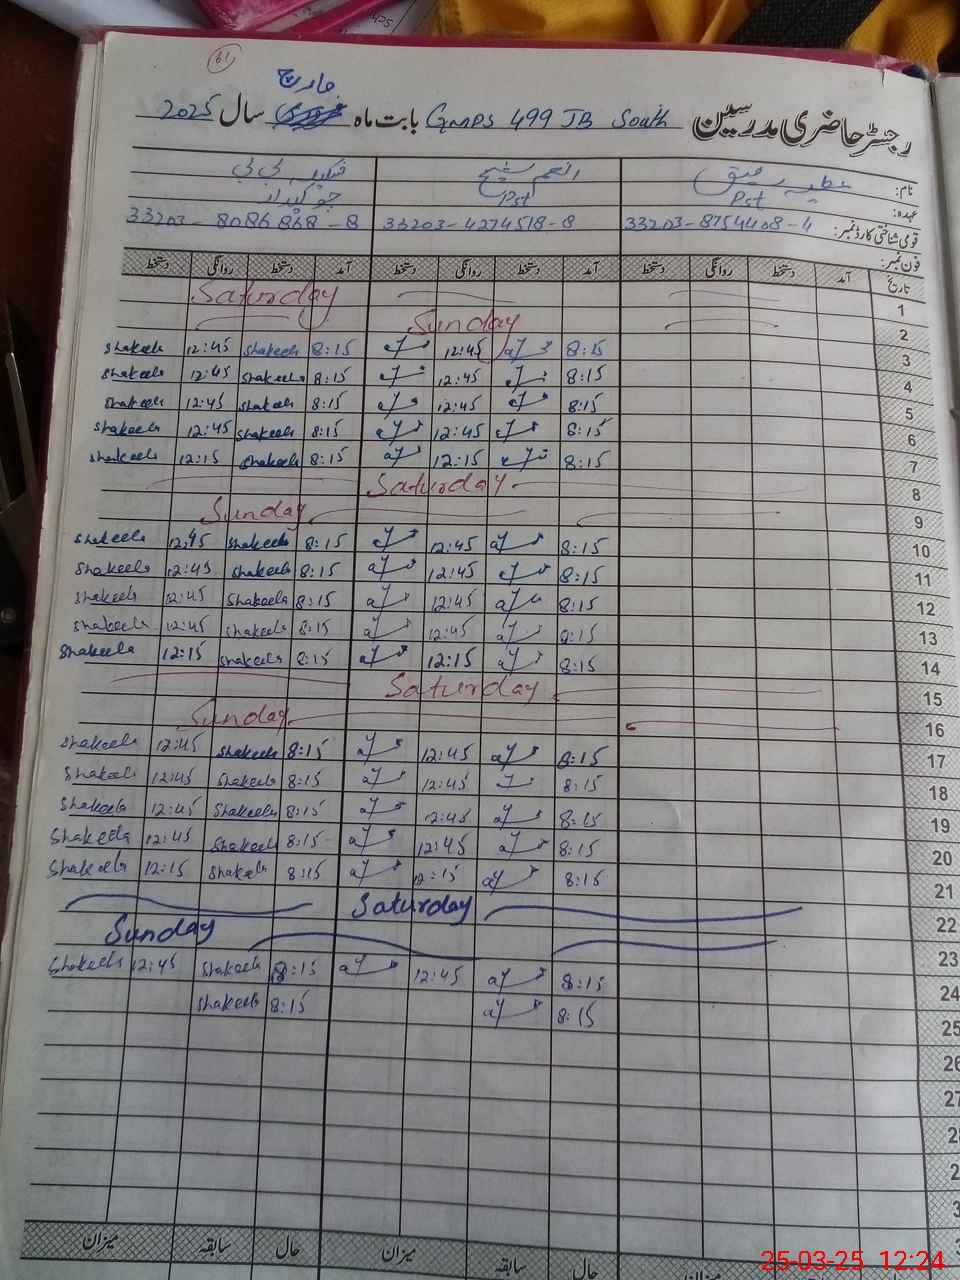 61
مارچ
رجسٹر حاضری مدرسین GMPS 499 JB South بابت ماہ سال 2025
نام: عطیہ رفیق انعم شیخ شکیلہ بی بی
عہدہ: Pst Pst چوکیدار
قومی شناختی کارڈ نمبر: 33203-8754408-4 33203-4274518-8 33203-8086868-8
فون نمبر:
تاریخ آمد دستخط روانگی دستخط آمد دستخط روانگی دستخط آمد دستخط روانگی دستخط
1 Saturday
2 Sunday
3 8:15 12:45 8:15 Shakeela 12:45 Shakeela
4 8:15 12:45 8:15 Shakeela 12:45 Shakeela
5 8:15 12:45 8:15 Shakeela 12:45 Shakeela
6 8:15 12:45 8:15 Shakeela 12:45 Shakeela
7 8:15 12:15 8:15 Shakeela 12:15 Shakeela
8 Saturday
9 Sunday
10 8:15 12:45 8:15 Shakeela 12:45 Shakeela
11 8:15 12:45 8:15 Shakeela 12:45 Shakeela
12 8:15 12:45 8:15 Shakeela 12:45 Shakeela
13 8:15 12:45 8:15 Shakeela 12:45 Shakeela
14 8:15 12:15 8:15 Shakeela 12:15 Shakeela
15 Saturday
16 Sunday
17 8:15 12:45 8:15 Shakeela 12:45 Shakeela
18 8:15 12:45 8:15 Shakeela 12:45 Shakeela
19 8:15 12:45 8:15 Shakeela 12:45 Shakeela
20 8:15 12:45 8:15 Shakeela 12:45 Shakeela
21 8:15 12:15 8:15 Shakeela 12:15 Shakeela
22 Saturday
23 Sunday
24 8:15 12:45 8:15 Shakeela 12:45 Shakeela
25 8:15 8:15 Shakeela
26
27
28
حال سابقہ میزان حال سابقہ میزان
25-03-25 12:24